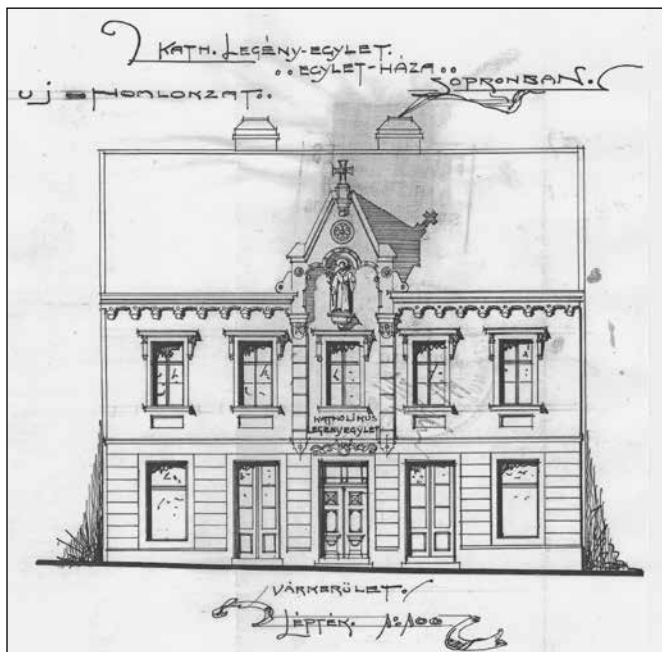 KATH. LEGÉNY-EGYLET.
EGYLET-HÁZA
SOPRONBAN.
UJ = HOMLOKZAT.
KATHOLIKUS
LEGÉNYEGYLET
VÁRKERÜLET.
LÉPTÉK. 1:100